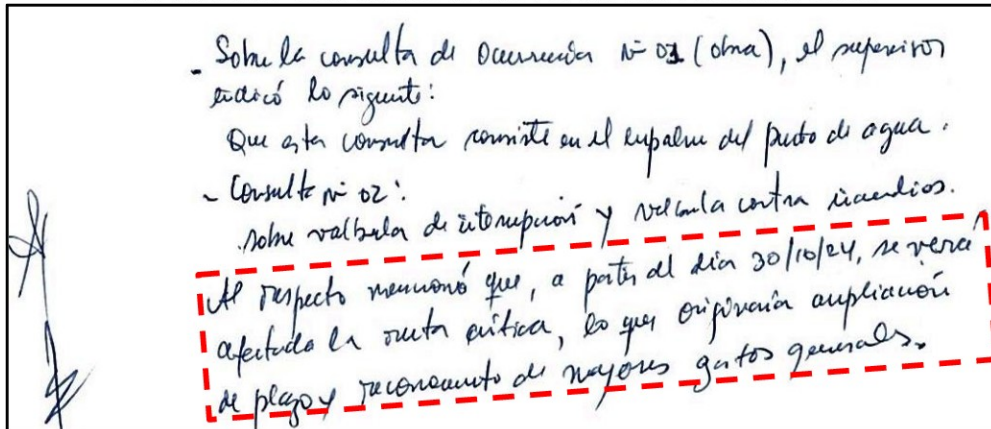 - Sobre la consulta de Ocurrencia N° 01 (obra), el supervisor
indicó lo siguiente:
Que esta consulta consiste en el empalme del punto de agua.
- Consulta N° 02:
. sobre valbula de interrupción y valvula contra incendios.
Al respecto mencionó que, a partir del día 30/10/24, se verá
afectada la ruta crítica, lo que originaría ampliación
de plazo y reconocimiento de mayores gastos generales.